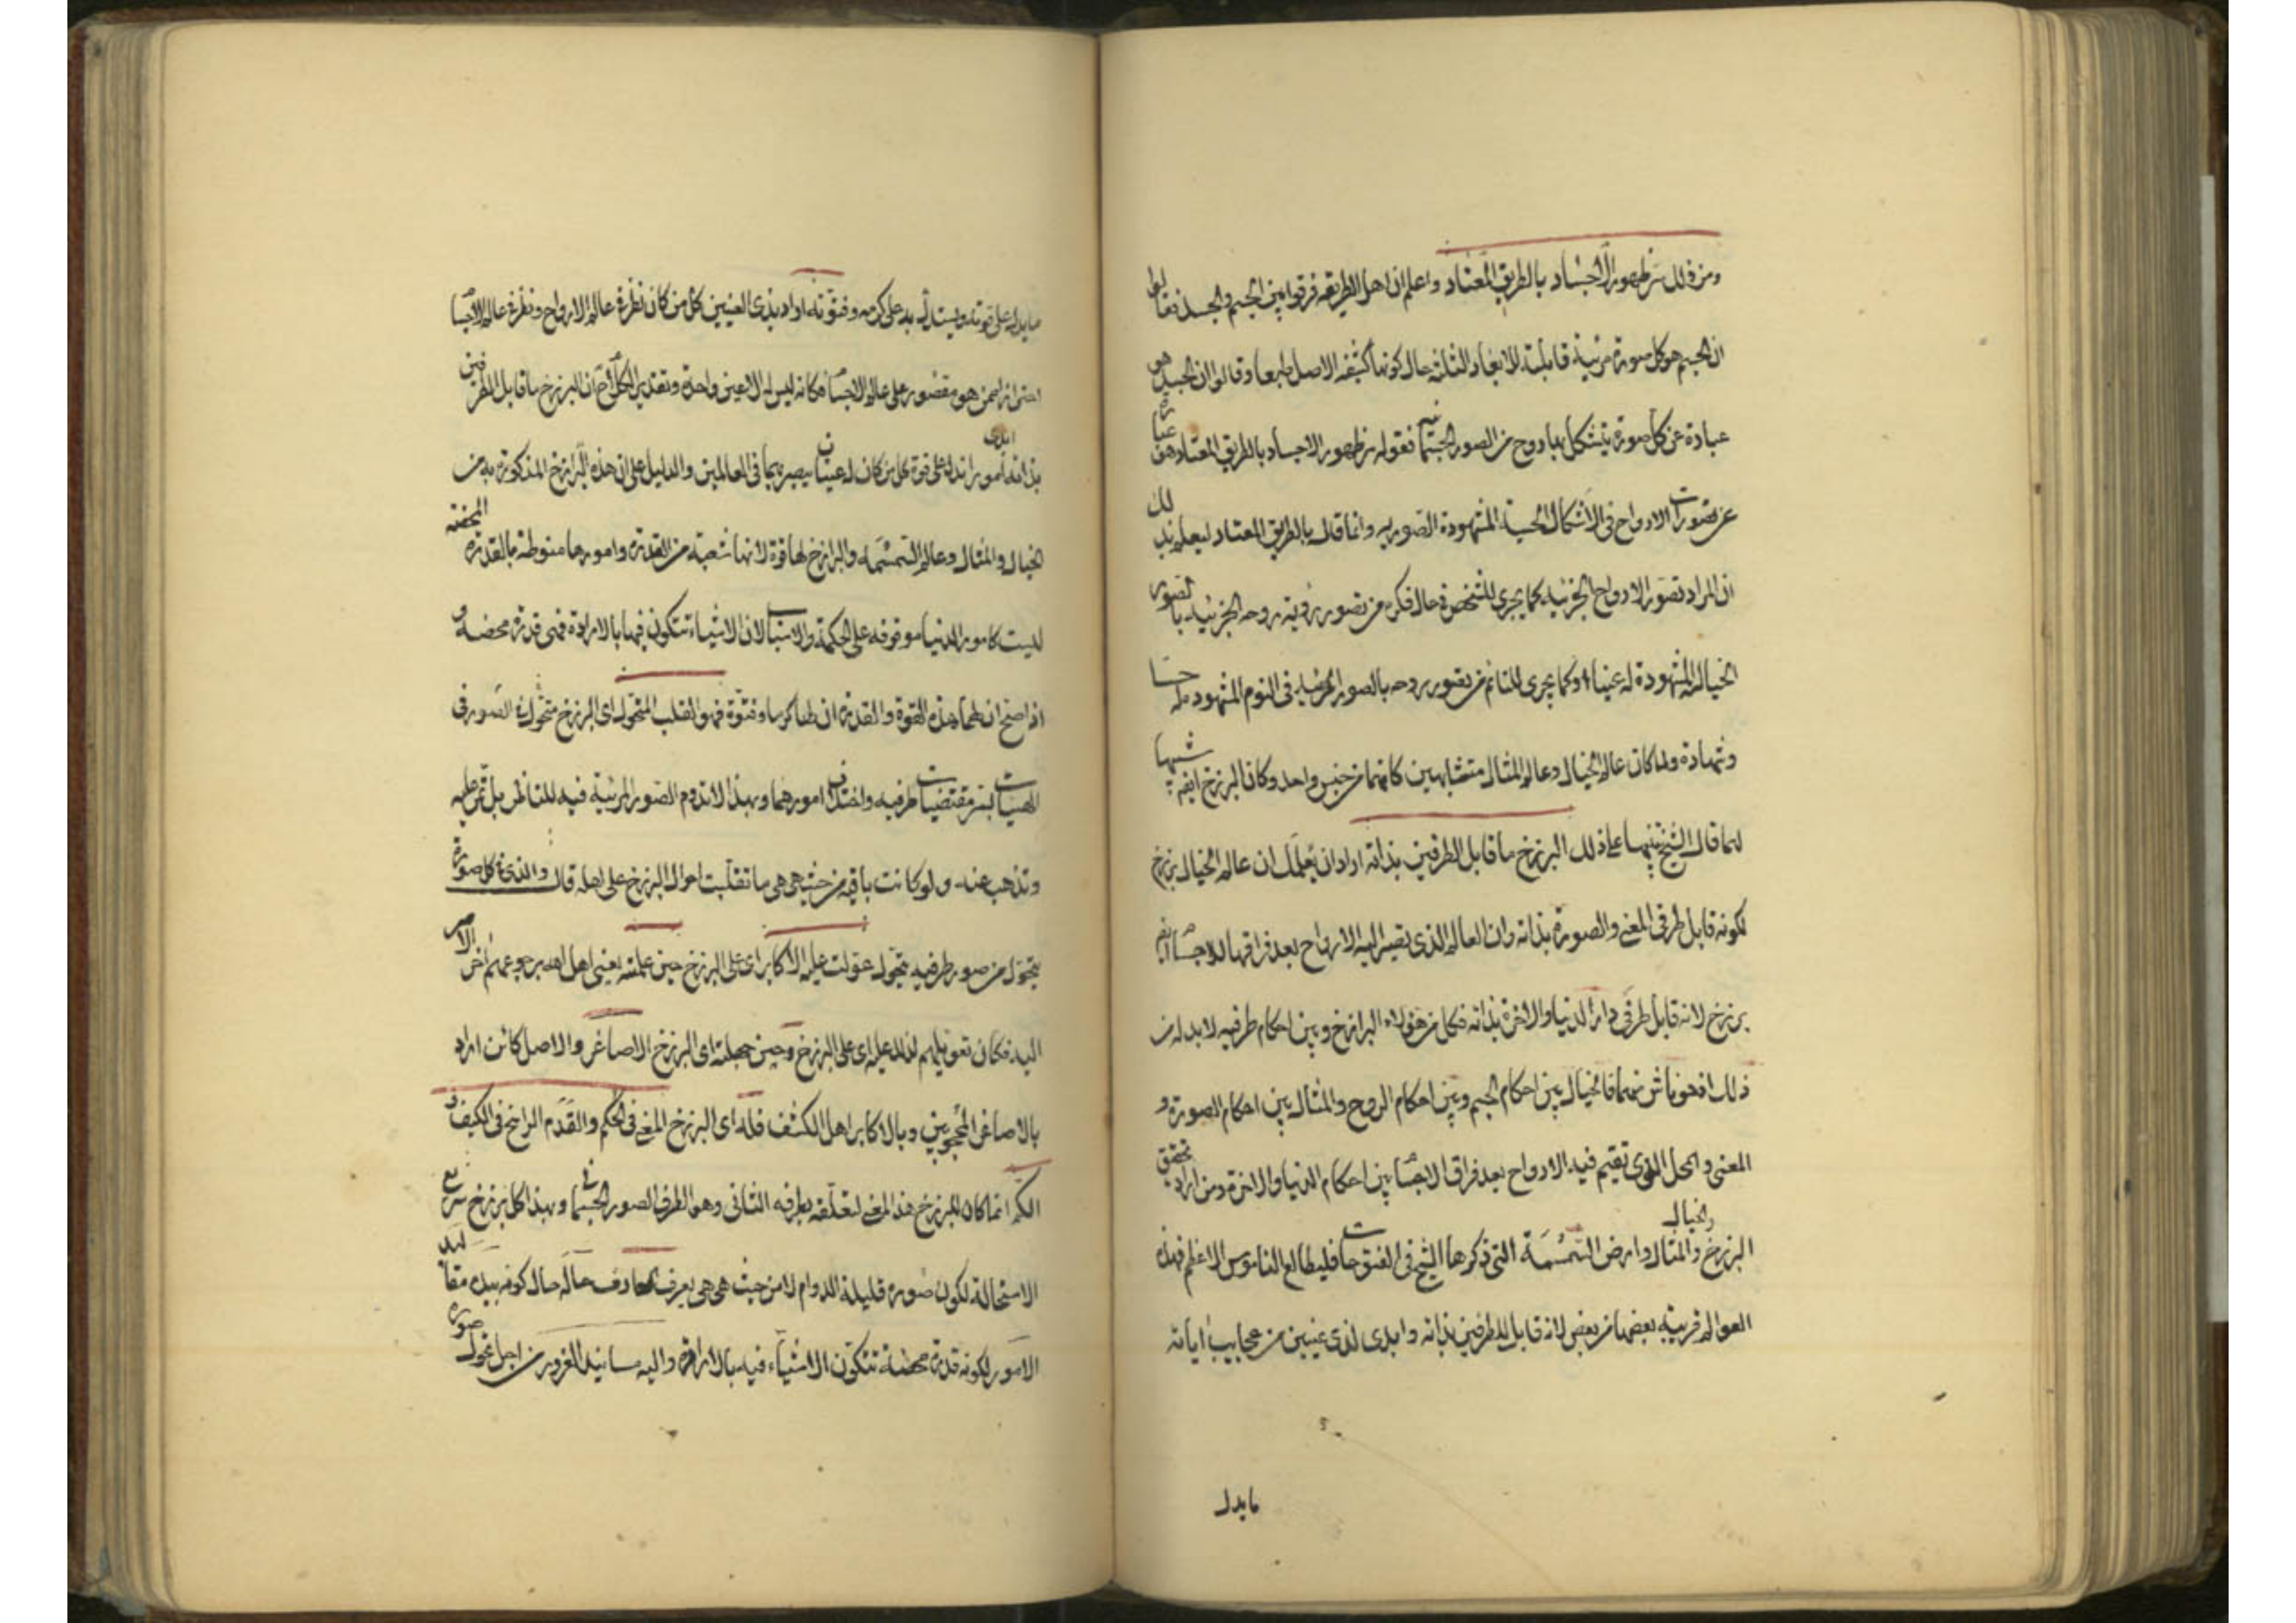 ومن ذلك سر ظهور الاجساد بالطريق المعتاد واعلم ان اهل الطريقه فرقوا بين الجسم والجسد فقالوا
ان الجسم هو كل صورة مرئية قابلة للابعاد الثلثة حال كونها كثيفه الاصل طبعا وقالوا ان الجسد هو
عبارة عن كل صورة يتشكل بها روح من الصور الجسمانيه فقوله سر ظهور الاجساد بالطريق المعتاد هو عبارة
عن تصورات الارواح في الاشكال الحسية المشهودة الصوريه وانما قال بالطريق المعتاد ليعلم بذلك
ان المراد تصور الارواح الجزئيه كما يجري للشخص في حال فكره من تصور رؤية روحه الجزئيه بالصور
الخياليه المشهودة له عينا وكما يجري للنائم من تصور روحه بالصور المرئيه في النوم المشهوده له حسا
وشهادة ولما كان عالم الخيال وعالم المثال متشابهين كانهما من جنس واحد وكان البرزخ ايضا شبيها
لهما قال الشيخ تنبيها على ذلك البرزخ ما قابل الطرفين بذاته اراد ان يعلمك ان عالم الخيال برزخ
لكونه قابل طرفي المعنى والصورة بذاته وان العالم الذي تصير اليه الارواح بعد فراقها للاجساد ايضا
برزخ لانه قابل طرفي دار الدنيا والاخرة بذاته فكل من هؤلاء البرازخ وبين احكام طرفيه لا بد له من
ذلك اذ هو ناش منهما فالخيال بين احكام الجسم وبين احكام الروح والمثال بين احكام الصورة و
المعنى والمحل الذي تقيم فيه الارواح بعد فراق الاجساد بين احكام الدنيا والاخرة ومن اراد تحقيق
البرزخ والمثال والخيال وارض السمسمة التي ذكرها الشيخ في الفتوحات فليطالع الناموس الاعظم فهذه
العوالم قريبة بعضها من بعض لانه قابل للطرفين بذاته وابدى لذي عينين من عجايب اياته
ما يدل
ما يدل على قوته ويستدل به على كرمه وفتوته اراد بذي العينين كل من كان نظره في عالم الارواح ونظره في عالم الاجساد
احترازا ممن هو مقصور على عالم الاجساد فكانه ليس له الا عين واحدة وتقدير الكلام ان البرزخ ما قابل الطرفين
بذاته ابدى امورا تدل على قوة كل من كان له عينان يبصر بهما في العالمين والدليل على ان هذه البرازخ المذكورة من
الخيال والمثال وعالم السمسمه والبرازخ لها قوة لانها شعبة من القدرة وامورها منوطة بالقدرة المحضه
ليست كامور الدنيا موقوفه على الحكمة والاسباب لان الاشياء تتكون فيها بالارادة فهي قدرة محضه و
اذا صح ان لها هذه القوة والقدرة ان لها كرما وفتوة فهو القلب المتحول اي البرزخ متحول في الصور في
الهيئات لسر مقتضيات طرفيه واختلاف امورهما وبهذا لا تدوم الصور المرئية فيه للناظر بل تمر عليه
وتذهب عنه ولو كانت باقيه من حيث هي هي ما تقلبت احوال البرزخ على اهله قال والذي في كل صورة
يتحول من صور طرفيه يتحول عولت عليه الاكابر اي على البرزخ حين علمته يعني اهل الله برجوعهم اخر الامر
اليه فكان تعويلهم لذلك عليه اي على البرزخ وحين جهلته اي البرزخ الاصاغر والاصل كائن اراد
بالاصاغر المحجوبين وبالاكابر اهل الكشف فله اي البرزخ المعنى في الحكم والقدم الراسخ في الكيف و
الكم انما كان للبرزخ هذا المعنى لتعلقه بطرفه الثاني وهو الطرف الصور الجسماني وبهذا كل برزخ سريع
الاستحالة لكون صوره قليلة الدوام لا من حيث هي هي يعرف العارف حاله حال كونه بيده مقاليد
الامور لكونه قدرة محضة تتكون الاشياء فيه بالارادة واليه مسانيد الغرور من اجل تحول صوره